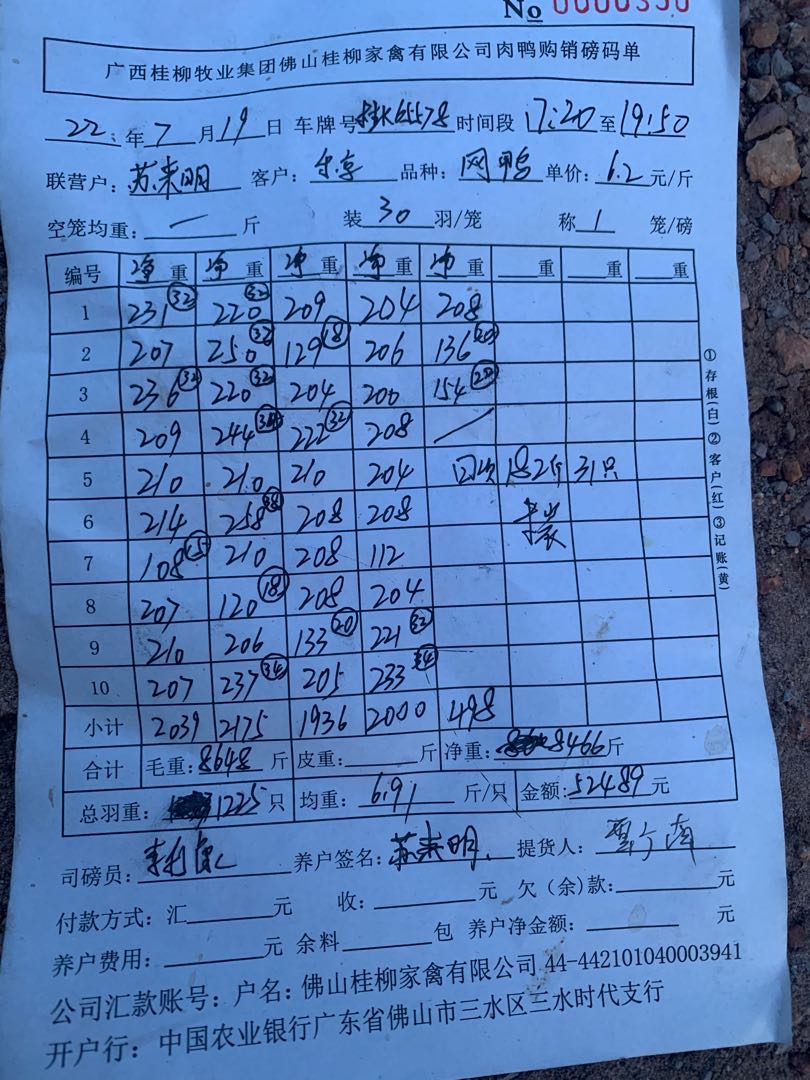 No 0000350
广西桂柳牧业集团佛山桂柳家禽有限公司肉鸭购销磅码单
22 年 7 月 19 日 车牌号 65578 时间段 17:20 至 19:50
联营户: 苏来明 客户: 品种: 网鸭 单价: 6.2 元/斤
空笼均重: — 斤 装 30 羽/笼 称 1 笼/磅
编号 净重 净重 净重 净重 净重 重 重 重
1 231 (32) 220 (32) 209 204 208
2 207 250 (32) 129 (18) 206 136 (20)
3 236 (32) 220 (32) 204 200 154
4 209 244 (34) 222 (32) 208 /
5 210 210 210 204 182斤 31只
6 214 258 (38) 208 208
7 108 (15) 210 208 112
8 207 120 (18) 208 204
9 210 206 133 (20) 221 (32)
10 207 237 (34) 205 233 (34)
小计 2039 2175 1936 2000 498
合计 毛重: 8648 斤 皮重: 斤 净重: 8466 斤
总羽重: 1225 只 均重: 6.91 斤/只 金额: 52489 元
司磅员: 养户签名: 苏来明 提货人:
付款方式: 汇 元 收: 元 欠(余)款: 元
养户费用: 元 余料 包 养户净金额: 元
公司汇款账号: 户名: 佛山桂柳家禽有限公司 44-442101040003941
开户行: 中国农业银行广东省佛山市三水区三水时代支行
①存根(白)②客户(红)③记账(黄)